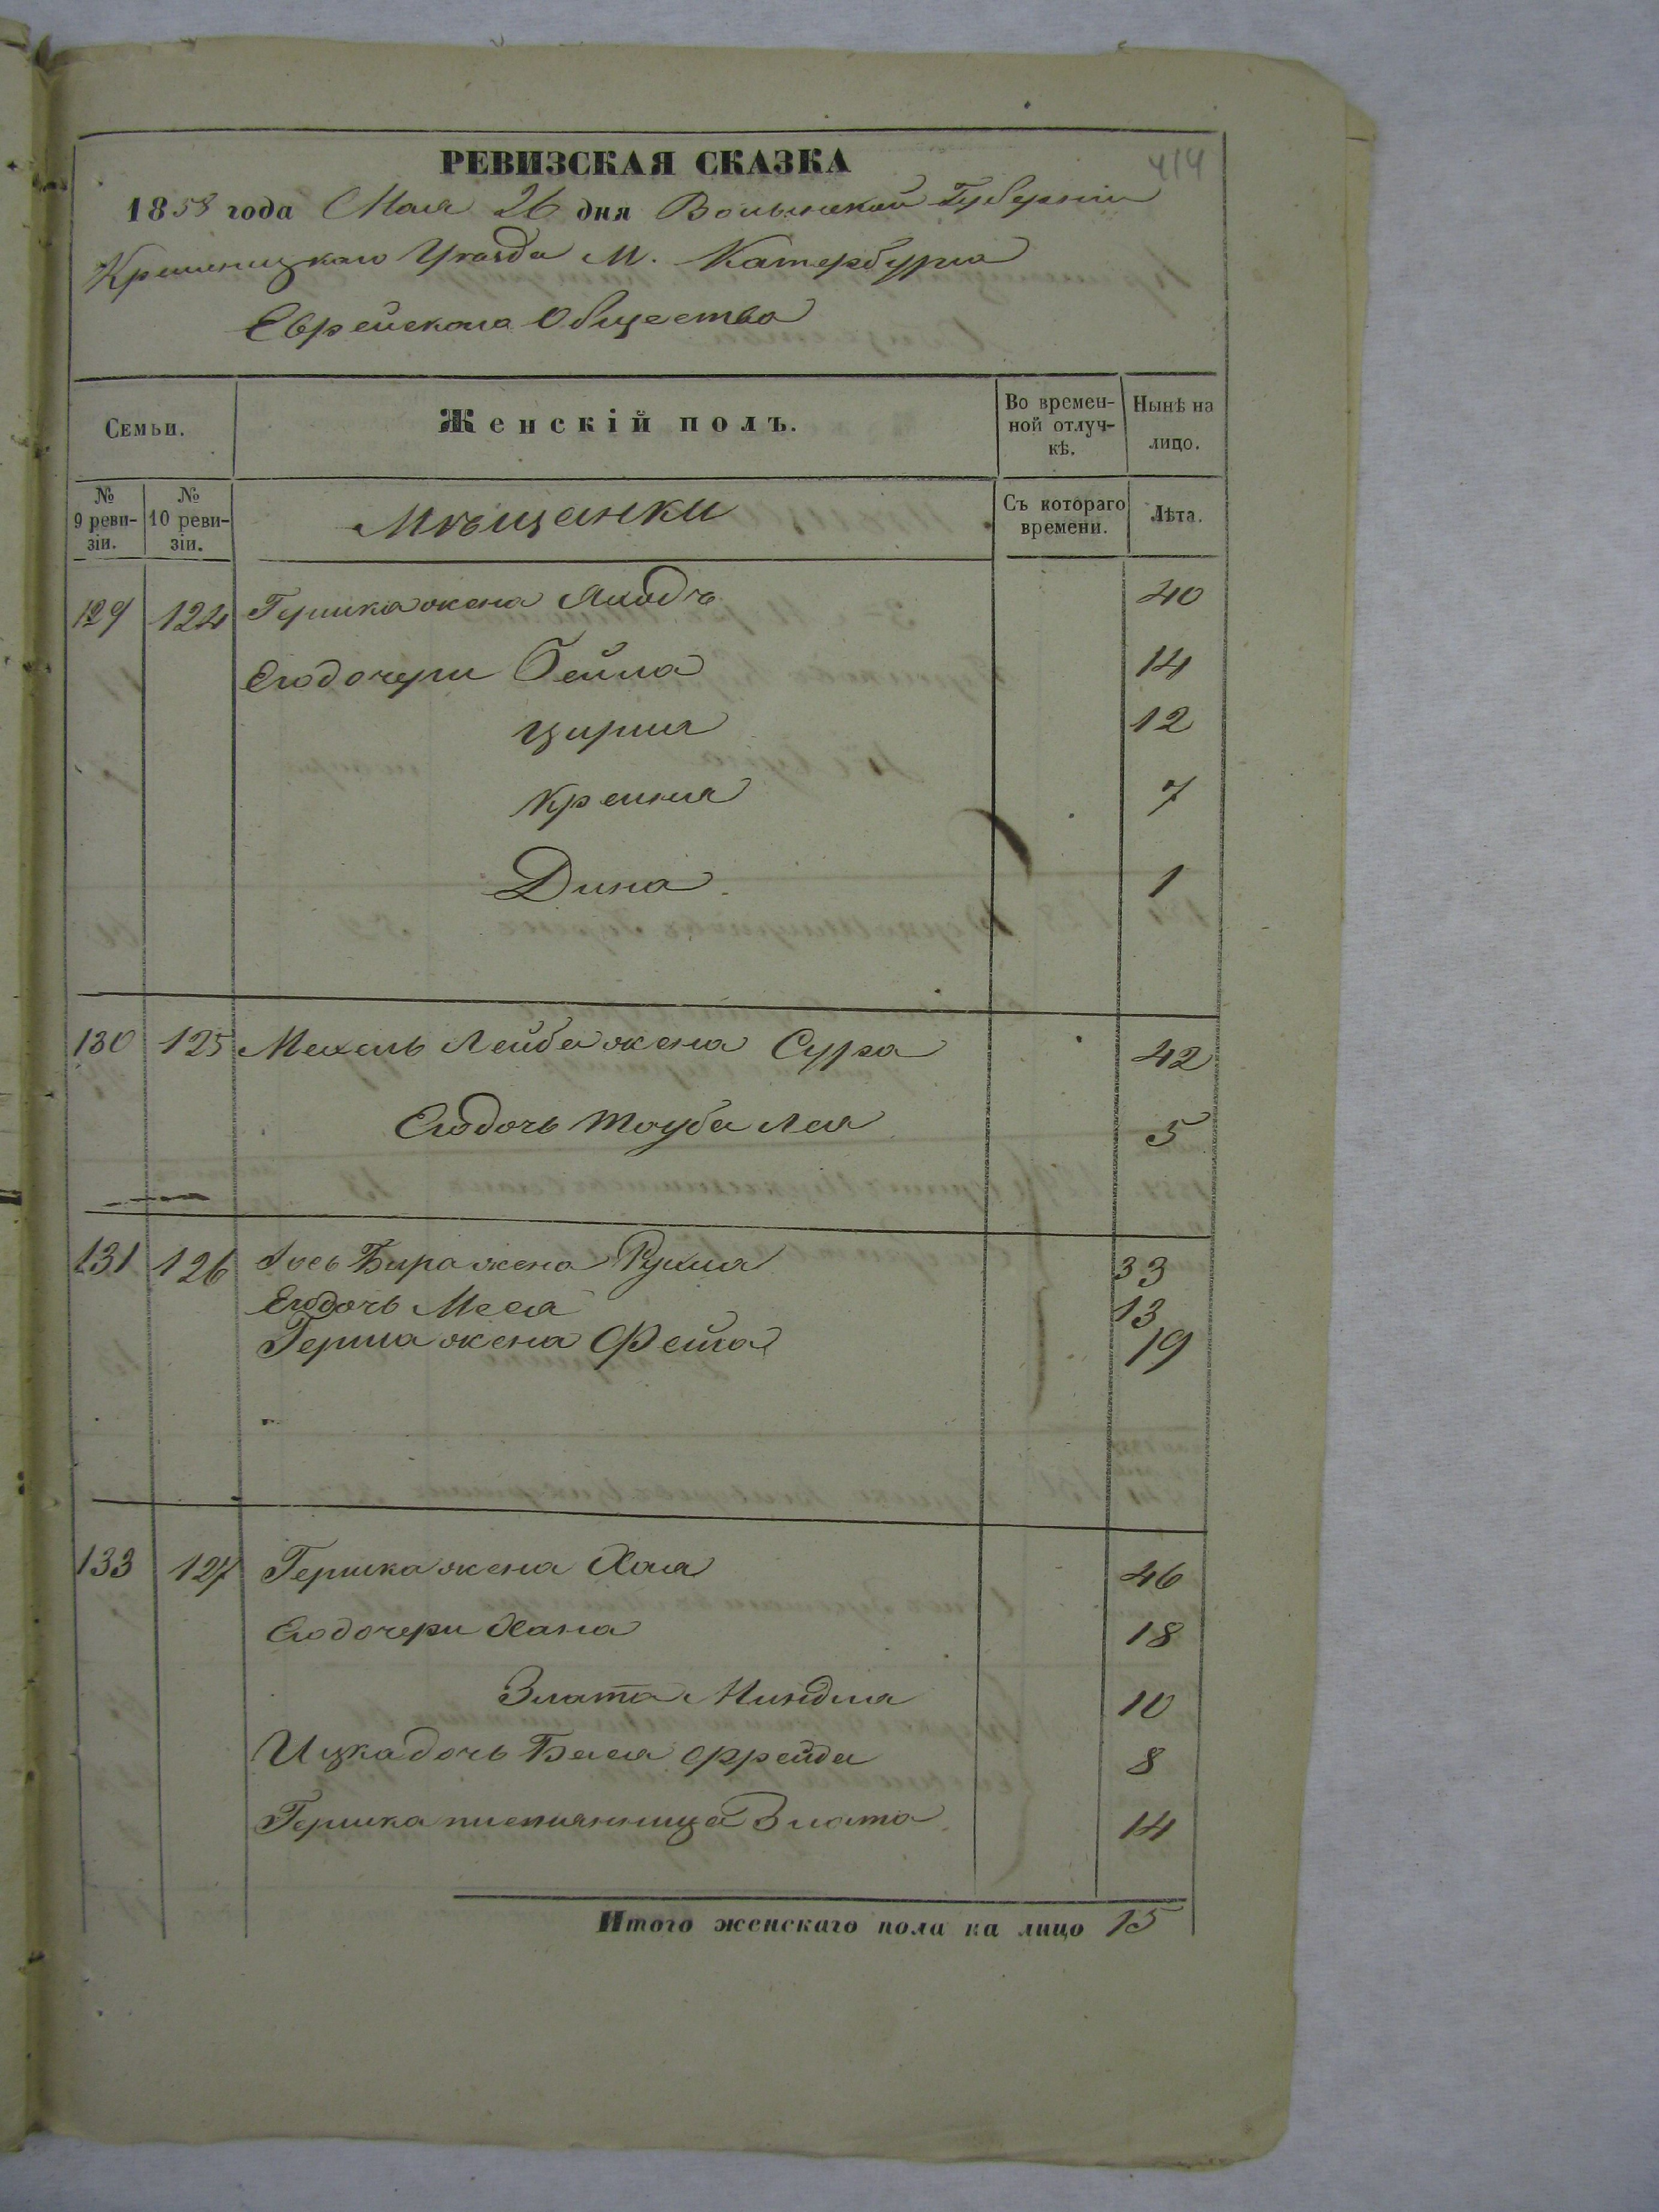 РЕВИЗСКАЯ СКАЗКА
414
1858 года Мая 26 дня Волынской Губерніи
Кременецкаго Уѣзда М. Катербурга
Еврейскаго Общества
Семьи.
Женскій полъ.
Во времен-
ной отлуч-
кѣ.
Нынѣ на
лицо.
№
9 реви-
зіи.
№
10 реви-
зіи.
Мѣщанки
Съ котораго
времени.
Лѣта.
129 124 Гершка жена 40
Его дочери Бейла 14
Цирля 12
Крейня 7
Дина 1
130 125 Мехель Лейба жена Сура 42
Его дочь Тауба Лея 5
131 126 Іось Бира жена Рухля 33
Его дочь Меся 13
Герша жена Фейга 19
133 127 Гершка жена Хая 46
Его дочери Хана 18
Злата Миндля 10
Ицка дочь Бася Фрейда 8
Гершка племянница Злата 14
Итого женскаго пола на лицо 15